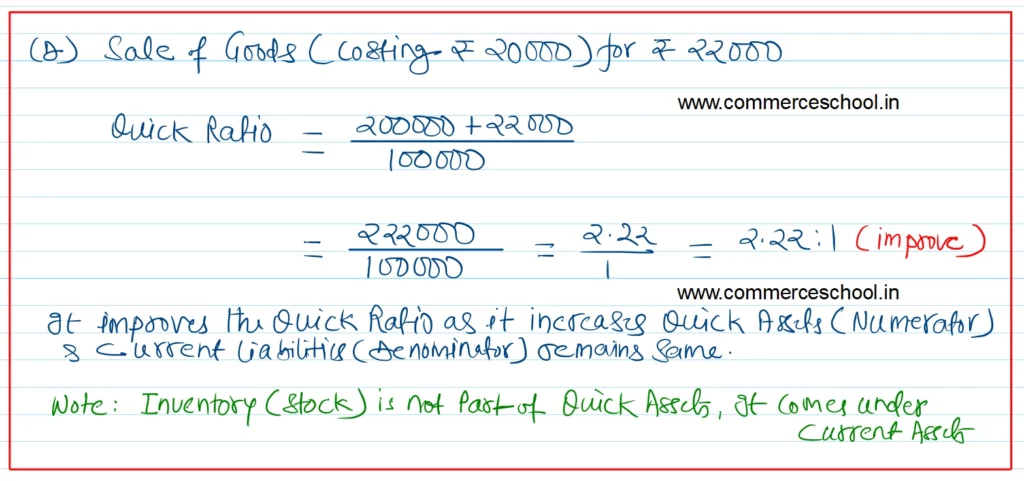 (A) Sale of Goods (Costing ₹ 20000) for ₹ 22000
www.commerceschool.in
Quick Ratio = 200000 + 22000 / 100000
= 222000 / 100000 = 2.22 / 1 = 2.22 : 1 (improve)
www.commerceschool.in
It improves the Quick Ratio as it increases Quick Assets (Numerator)
& Current Liabilities (Denominator) remains same.
Note: Inventory (Stock) is not Part of Quick Assets, It comes under
Current Assets